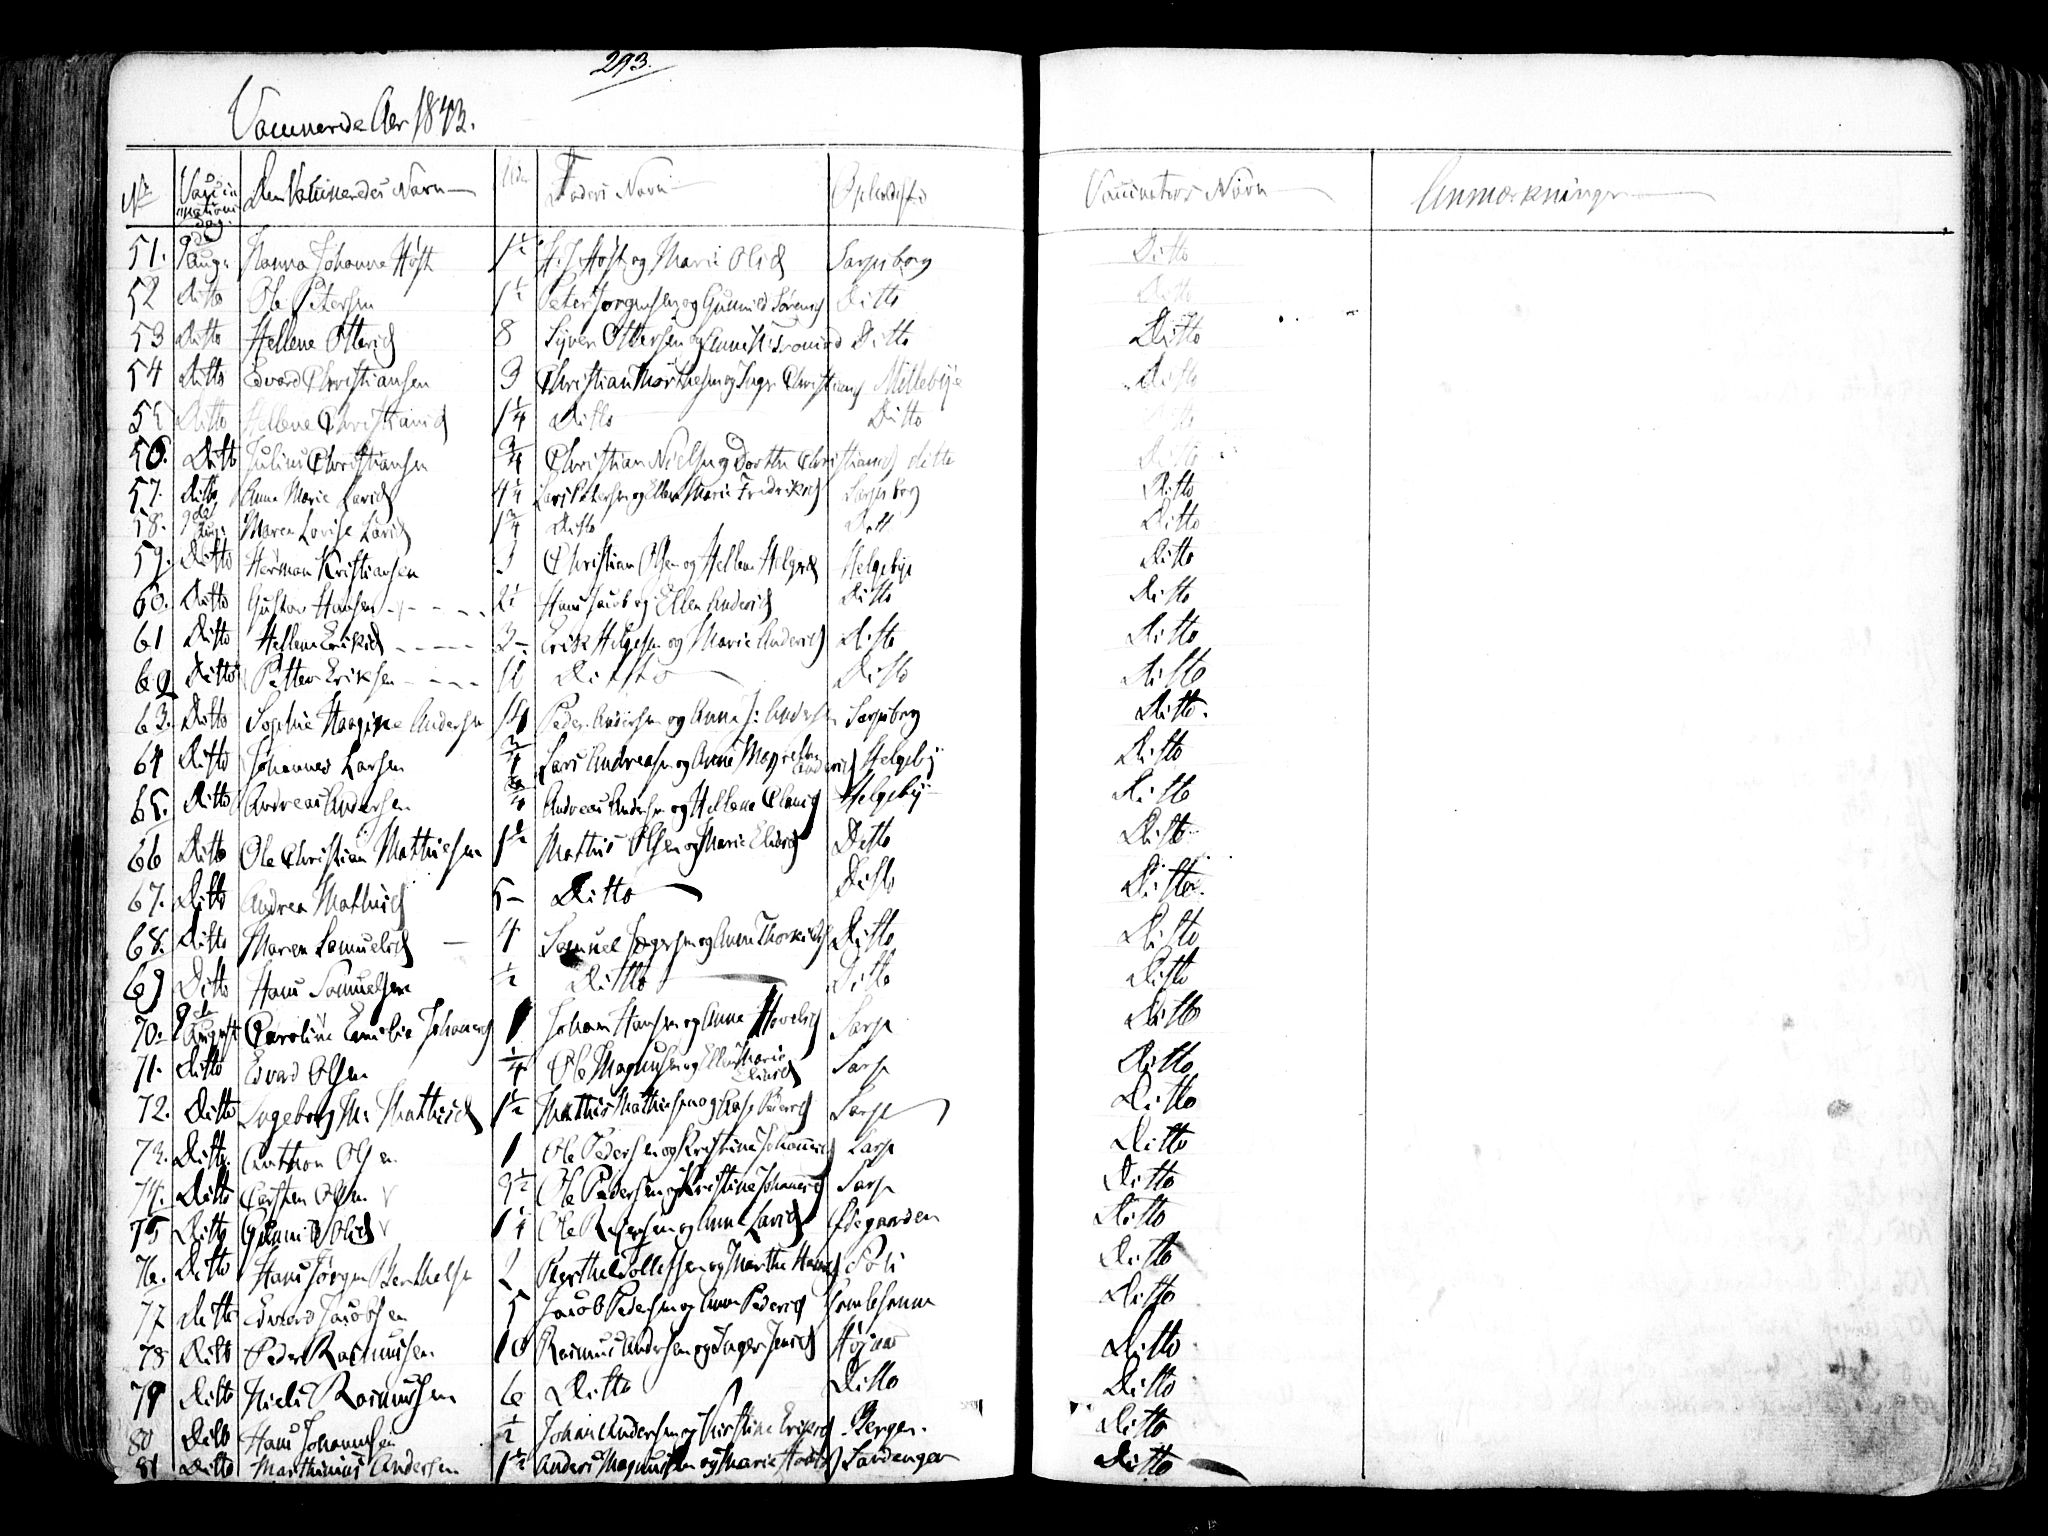 293.
Vaccinerede Aar 1843.
No Vaccinations dag. Den Vaccineredes Navn Alder Faders Navn Opholdssted Vaccinators Navn Anmærkninger
51. 9de Augs Hanna Johanne Höst 1½ H. J. Höst og Marie Olsd Sarpsborg Ditto
52 Ditto Ole Petersen 1½ Peter Jörgensen og Gunnild Sörensd Ditto Ditto
53 Ditto Hellene Ottersd 8 Syver Ottersen og Ditto Ditto
54 Ditto Edvard Christiansen 3 Christian Morthesen og Inger Christians Millebye Ditto
55 Ditto Hellene Christiansd 1¼ Ditto Ditto Ditto
56. Ditto Julius Christiansen ¾ Christian Nielsen og Dorthe Christiansd ditto Ditto
57. Ditto Anne Marie Larsd 4½ Lars Petersen og Ellen Marie Fredriksd Sarpsborg Ditto
58. 9de Augs Maren Lovise Larsd 1¾ Ditto Ditto Ditto
59. Ditto Herman Kristiansen Christian Olsen og Hellene Helgesd Helgebye Ditto
60. Ditto Gustav Hansen 2½ Hans Jacob og Ellen Andersd Ditto Ditto
61 Ditto Hellene Eriksd 3 Erik Helgesen og Marie Andersd Ditto Ditto
62 Ditto Petter Eriksen Ditto Ditto Ditto
63. Ditto Sophie Andersen Peder Andersen og Anne J: Andersen Sarpsborg Ditto
64 Ditto Johannes Larsen ¾ Lars Andreasen og Anne Magrethe Andersd Helgeby Ditto
65. Ditto Andreas Andersen Andreas Andersen og Hellene Olausd Helgeby Ditto
66 Ditto Ole Christian Mathiesen 1½ Mathis Olsen og Marie Eliasd Ditto Ditto
67. Ditto Andrea Mathisd 5 Ditto Ditto Ditto
68. Ditto Maren Samuelsd 4 Samuel Jögersen og Anne Thorkildsd Ditto Ditto
69 Ditto Hans Samuelsen ½ Ditto Ditto Ditto
70. 9de August Caroline Emilie Johansd 1 Johan Hansen og Anne Hovelsd Sarp Ditto
71. Ditto Edvard Olsen ¼ Ole Magnusen og Ellen Marie Eliasd Sarp Ditto
72. Ditto Ingeborg M: Mathisd 1½ Mathis Mathisen og Aase Pedersd Sarp Ditto
73. Ditto Anthon Olsen 1 Ole Pedersen og Kristine Johannesd Sarp Ditto
74. Ditto Carsten Olsen 3½ Ole Pedersen og Kristine Johannesd Sarp Ditto
75 Ditto Gunnild Olsd 1¼ Ole og Anne Larsd Ödegaarden Ditto
76. Ditto Hans Jörgen Berthelsen Berthel Tollefsen og Marthe Hansd Ditto
77 Ditto Edvard Jacobsen 5 Jacob Pedersen og Anne Pedersd Ditto
78 Ditto Peder Rasmussen 10 Rasmus Andersen og Inger Jensd Ditto
79 Ditto Niels Rasmussen 6 Ditto Ditto Ditto
80 Ditto Hans Johannesen ½ Johan Andersen og Kirstine Eriksd Bergen. Ditto
81 Ditto Marthinius Andersen 1½ Anders Magnussen og Marie Sandengen Ditto